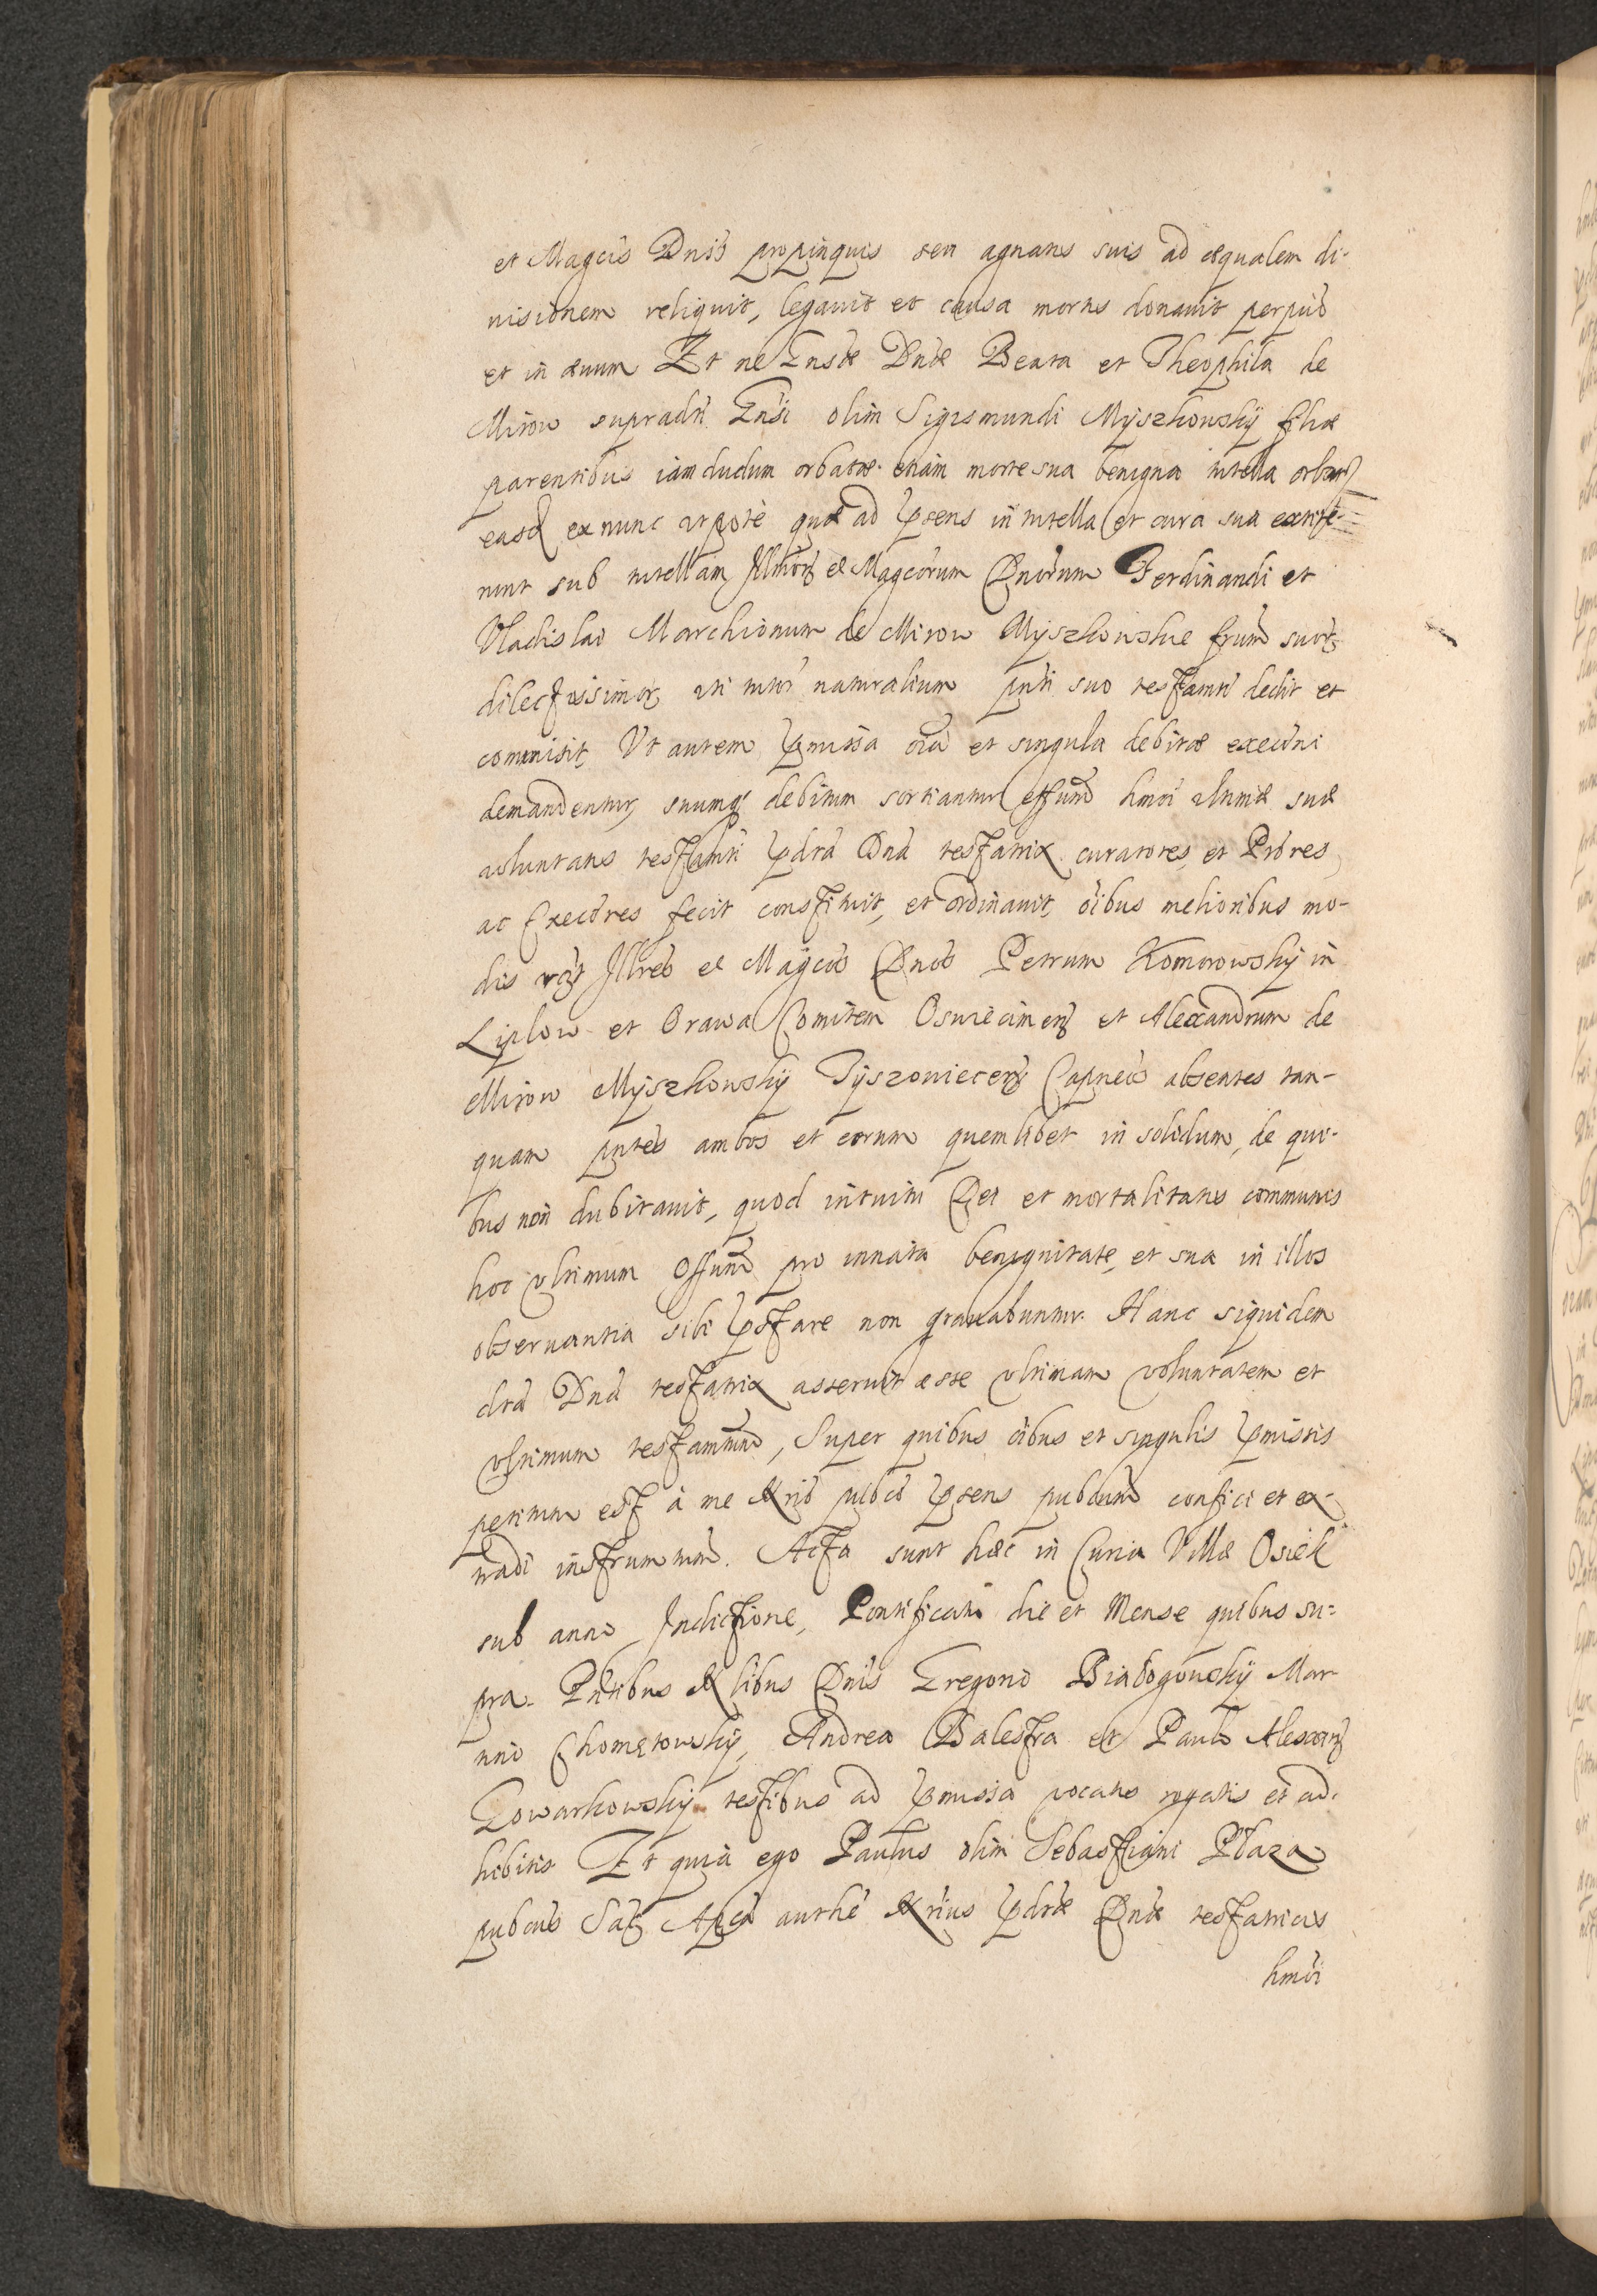 et Magcis Dnis propinquis seu agnatis suis ad æqualem di-
uisionem reliquit, legauit et causa mortis donauit perpuo
et in æuum Et ne Gnsæ Dnæ Beata et Theophila de
Mirow supradti Gnsi olim Sigismundi Myszkowsky filiæ
parentibus iam dudum orbatæ etiam morte sua benigna tutella orbarz
easq ex nunc utpote quæ ad psens in tutella et cura sua extite-
runt sub tutellam Illmorz et Magcorum Dnorum Ferdinandi et
Vladislai Marchionum de Mirow Myszkowskie frum suorz
dilectissimorz uti tutor naturalium pnti suo testamto dedit et
commisit Vt autem pmissa oia et singula debitæ execuni
demandentur, suumq debitum sortiantur effum hmoi ultimæ suæ
voluntatis testamti pdta Dna testatrix curatores, et Ptores,
ac Exectores fecit constituit, et ordinauit, oibus melioribus mo-
dis Illres et Magcos Dnos Petrum Komorowsky in
Liplow et Orawa Comitem Oswiecimen et Alexandrum de
Mirow Myszkowsky Tyszowiecen Capneos absentes tan-
quam pntes ambos et eorum quemlibet in solidum, de qui-
bus non dubitauit, quod intuitu Dei et mortalitatis communis
hoc vltimum offum pro innata benignitate, et sua in illos
obseruantia sibi pstare non grauabuntur. Hanc siquidem
dta Dna testatrix asseruit esse vltimam voluntatem et
vltimum testamtum, Super quibus oibus et singulis pmissis
petitum est à me Nrio publco psens pubcum confici et ex-
tradi instrummtum. Acta sunt hæc in Curia Villæ Osiek
sub anno Indictione, Pontificatu die et Mense quibus su-
pra. Pntibus Nlibus Dnis Gregorio Biabogowsky Mar-
tino Chometowsky, Andrea Balestra et Paulo Alexan
Gowarkowsky testibus ad pmissa vocatis rogatis et ad-
hibitis Et quia ego Paulus olim Sebastiani Plaza
pubcus Sac Aplca authe Nrius pdtæ Dnæ testatricis
hmoi